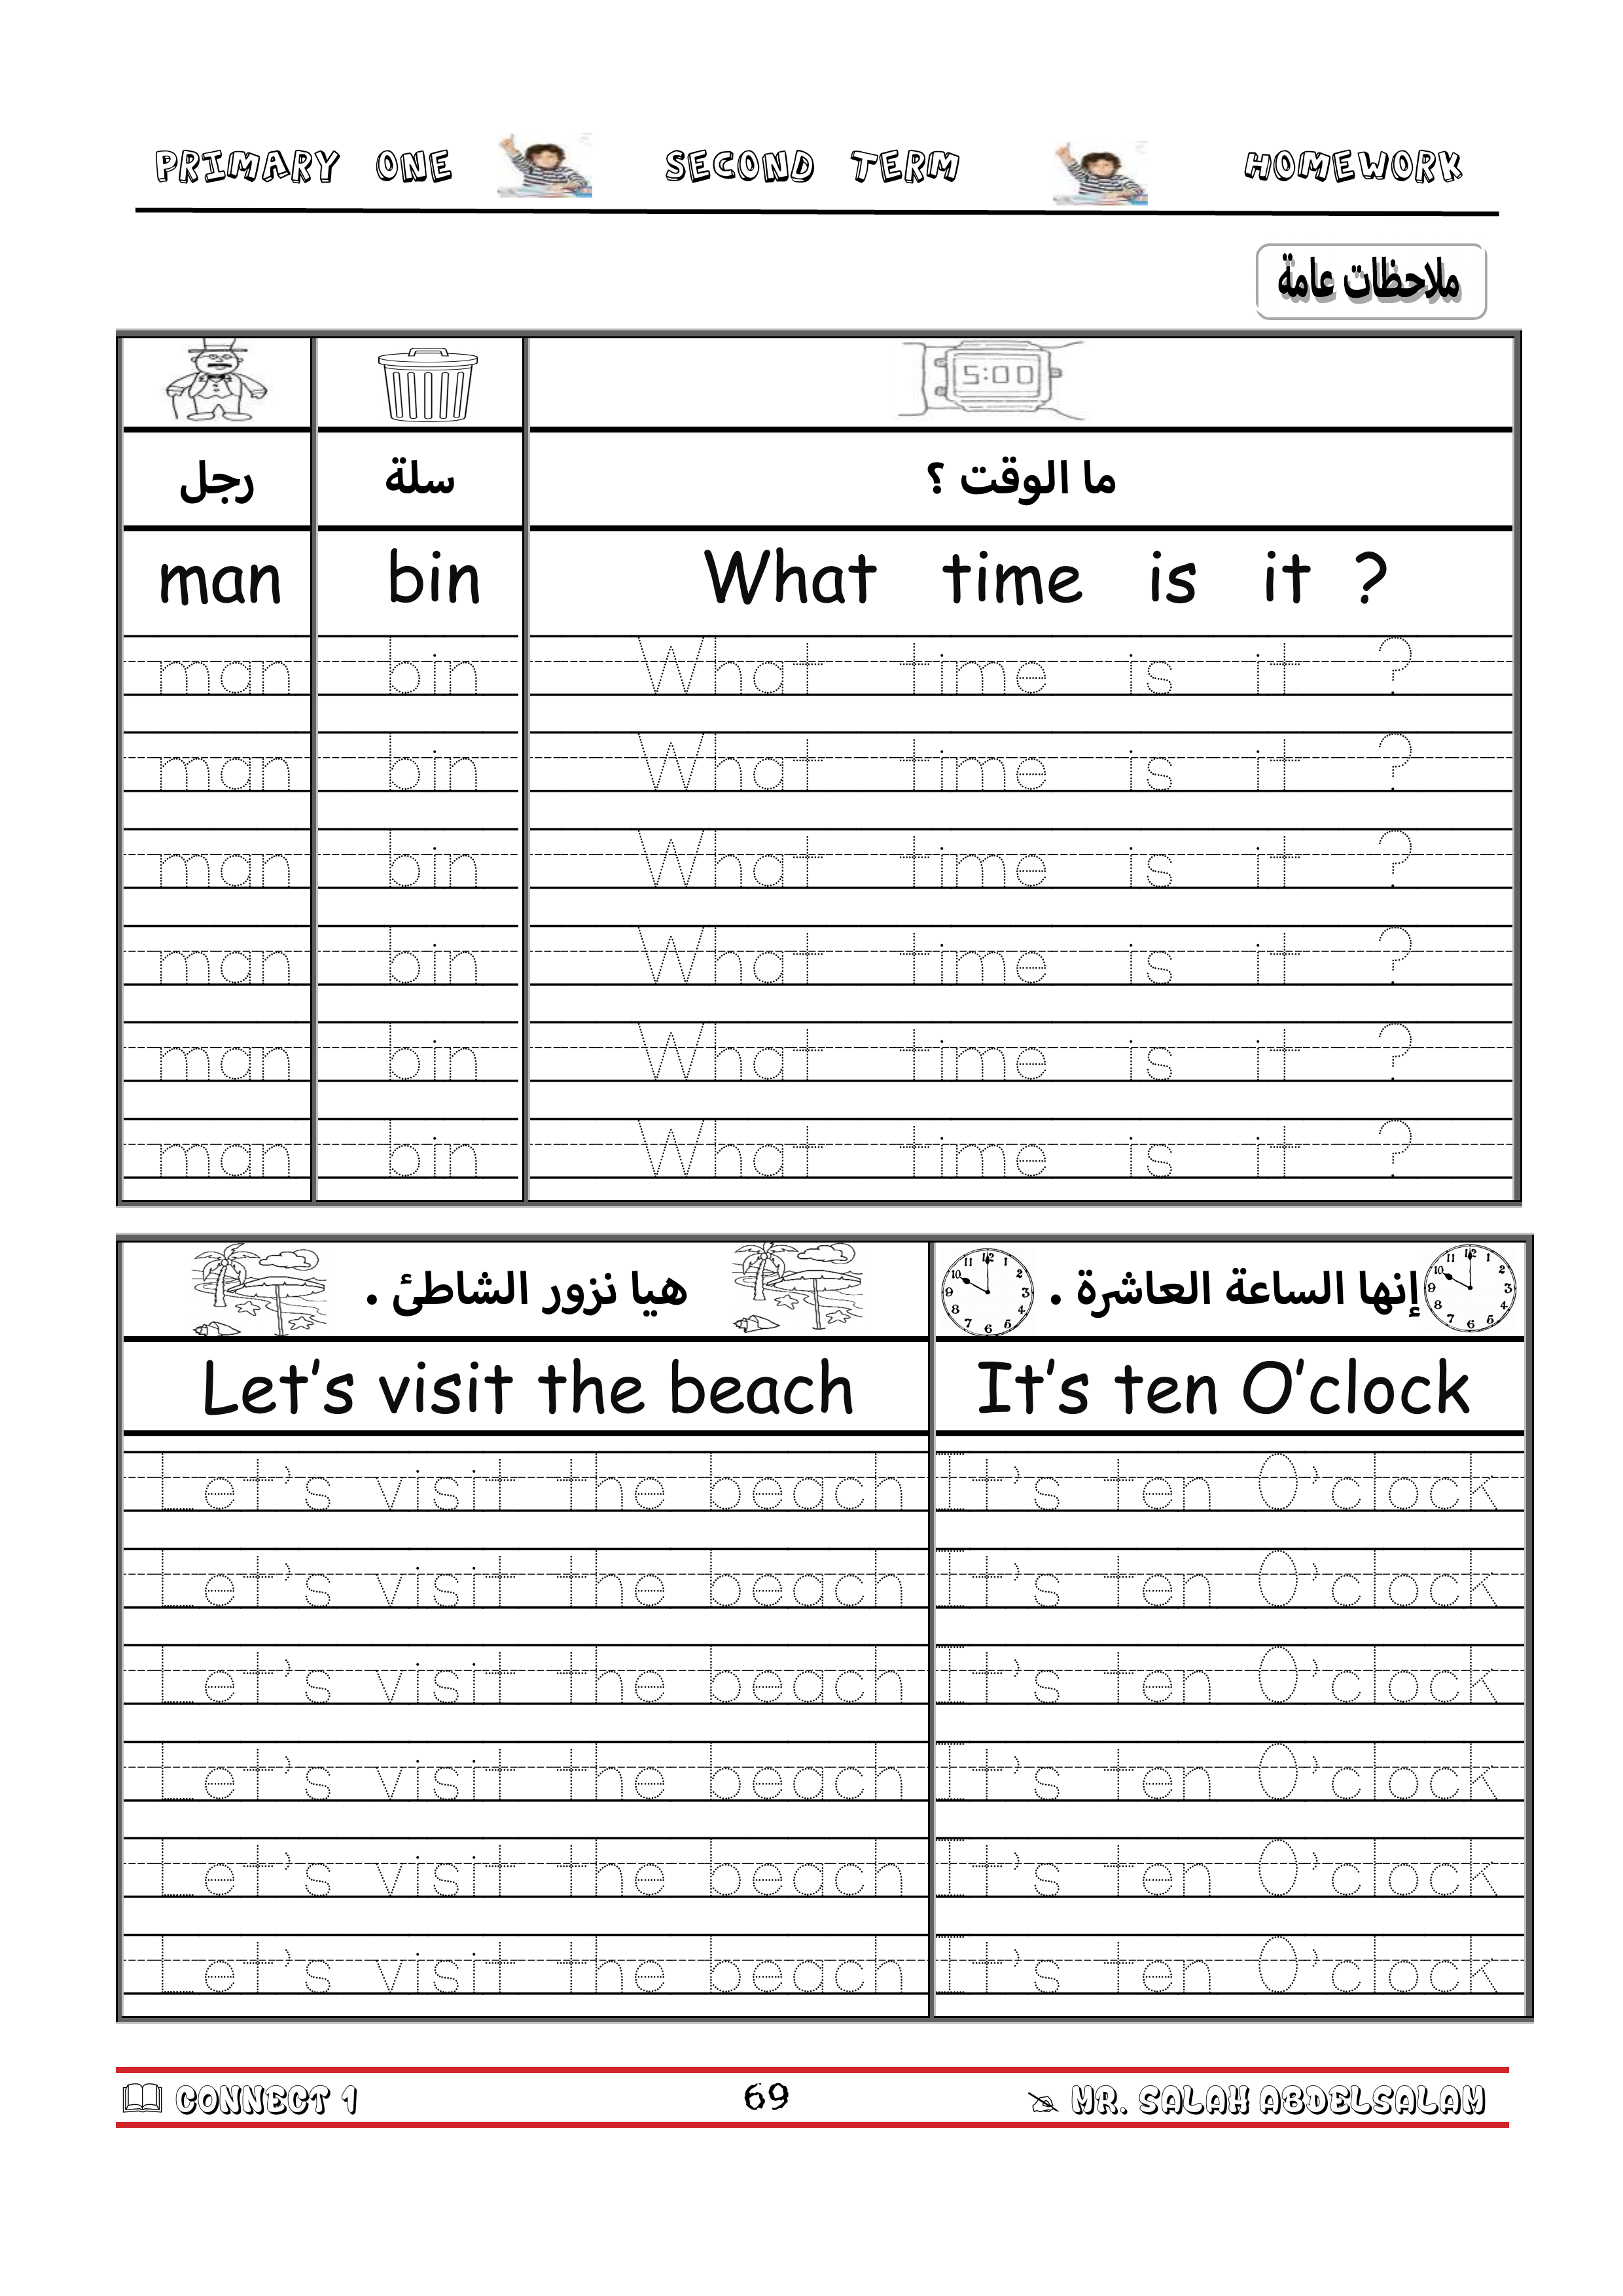 PRIMARY ONE SECOND TERM HOMEWORK
ملاحظات عامة
5:00
رجل سلة ما الوقت ؟
man bin What time is it ?
man bin What time is it ?
man bin What time is it ?
man bin What time is it ?
man bin What time is it ?
man bin What time is it ?
man bin What time is it ?
هيا نزور الشاطئ . إنها الساعة العاشرة .
Let's visit the beach It's ten O'clock
Let's visit the beach It's ten O'clock
Let's visit the beach It's ten O'clock
Let's visit the beach It's ten O'clock
Let's visit the beach It's ten O'clock
Let's visit the beach It's ten O'clock
Let's visit the beach It's ten O'clock
CONNECT 1 69 MR. SALAH ABDELSALAM